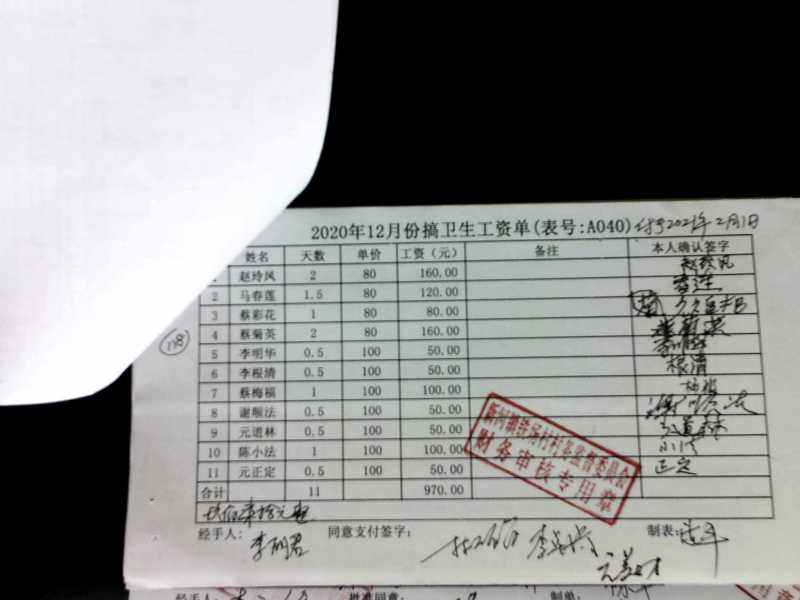 2020年12月份搞卫生工资单(表号:A040) 2021年2月1日
姓名 天数 单价 工资（元） 备注 本人确认签字
1 赵玲凤 2 80 160.00 赵玲凤
2 马春莲 1.5 80 120.00 春莲
3 蔡彩花 1 80 80.00
4 蔡菊英 2 80 160.00 蔡菊英
5 李明华 0.5 100 50.00 李明华
6 李根清 0.5 100 50.00 根清
7 蔡梅福 1 100 100.00
8 谢顺法 0.5 100 50.00 谢顺法
9 元道林 0.5 100 50.00 元道林
10 陈小法 1 100 100.00 小法
11 元正定 0.5 100 50.00 正定
合计 11 970.00
(178)
村村务监督委员会
财务审核专用章
玖佰柒拾元整
经手人: 同意支付签字: 制表:
经手人: 批准同意: 制单: